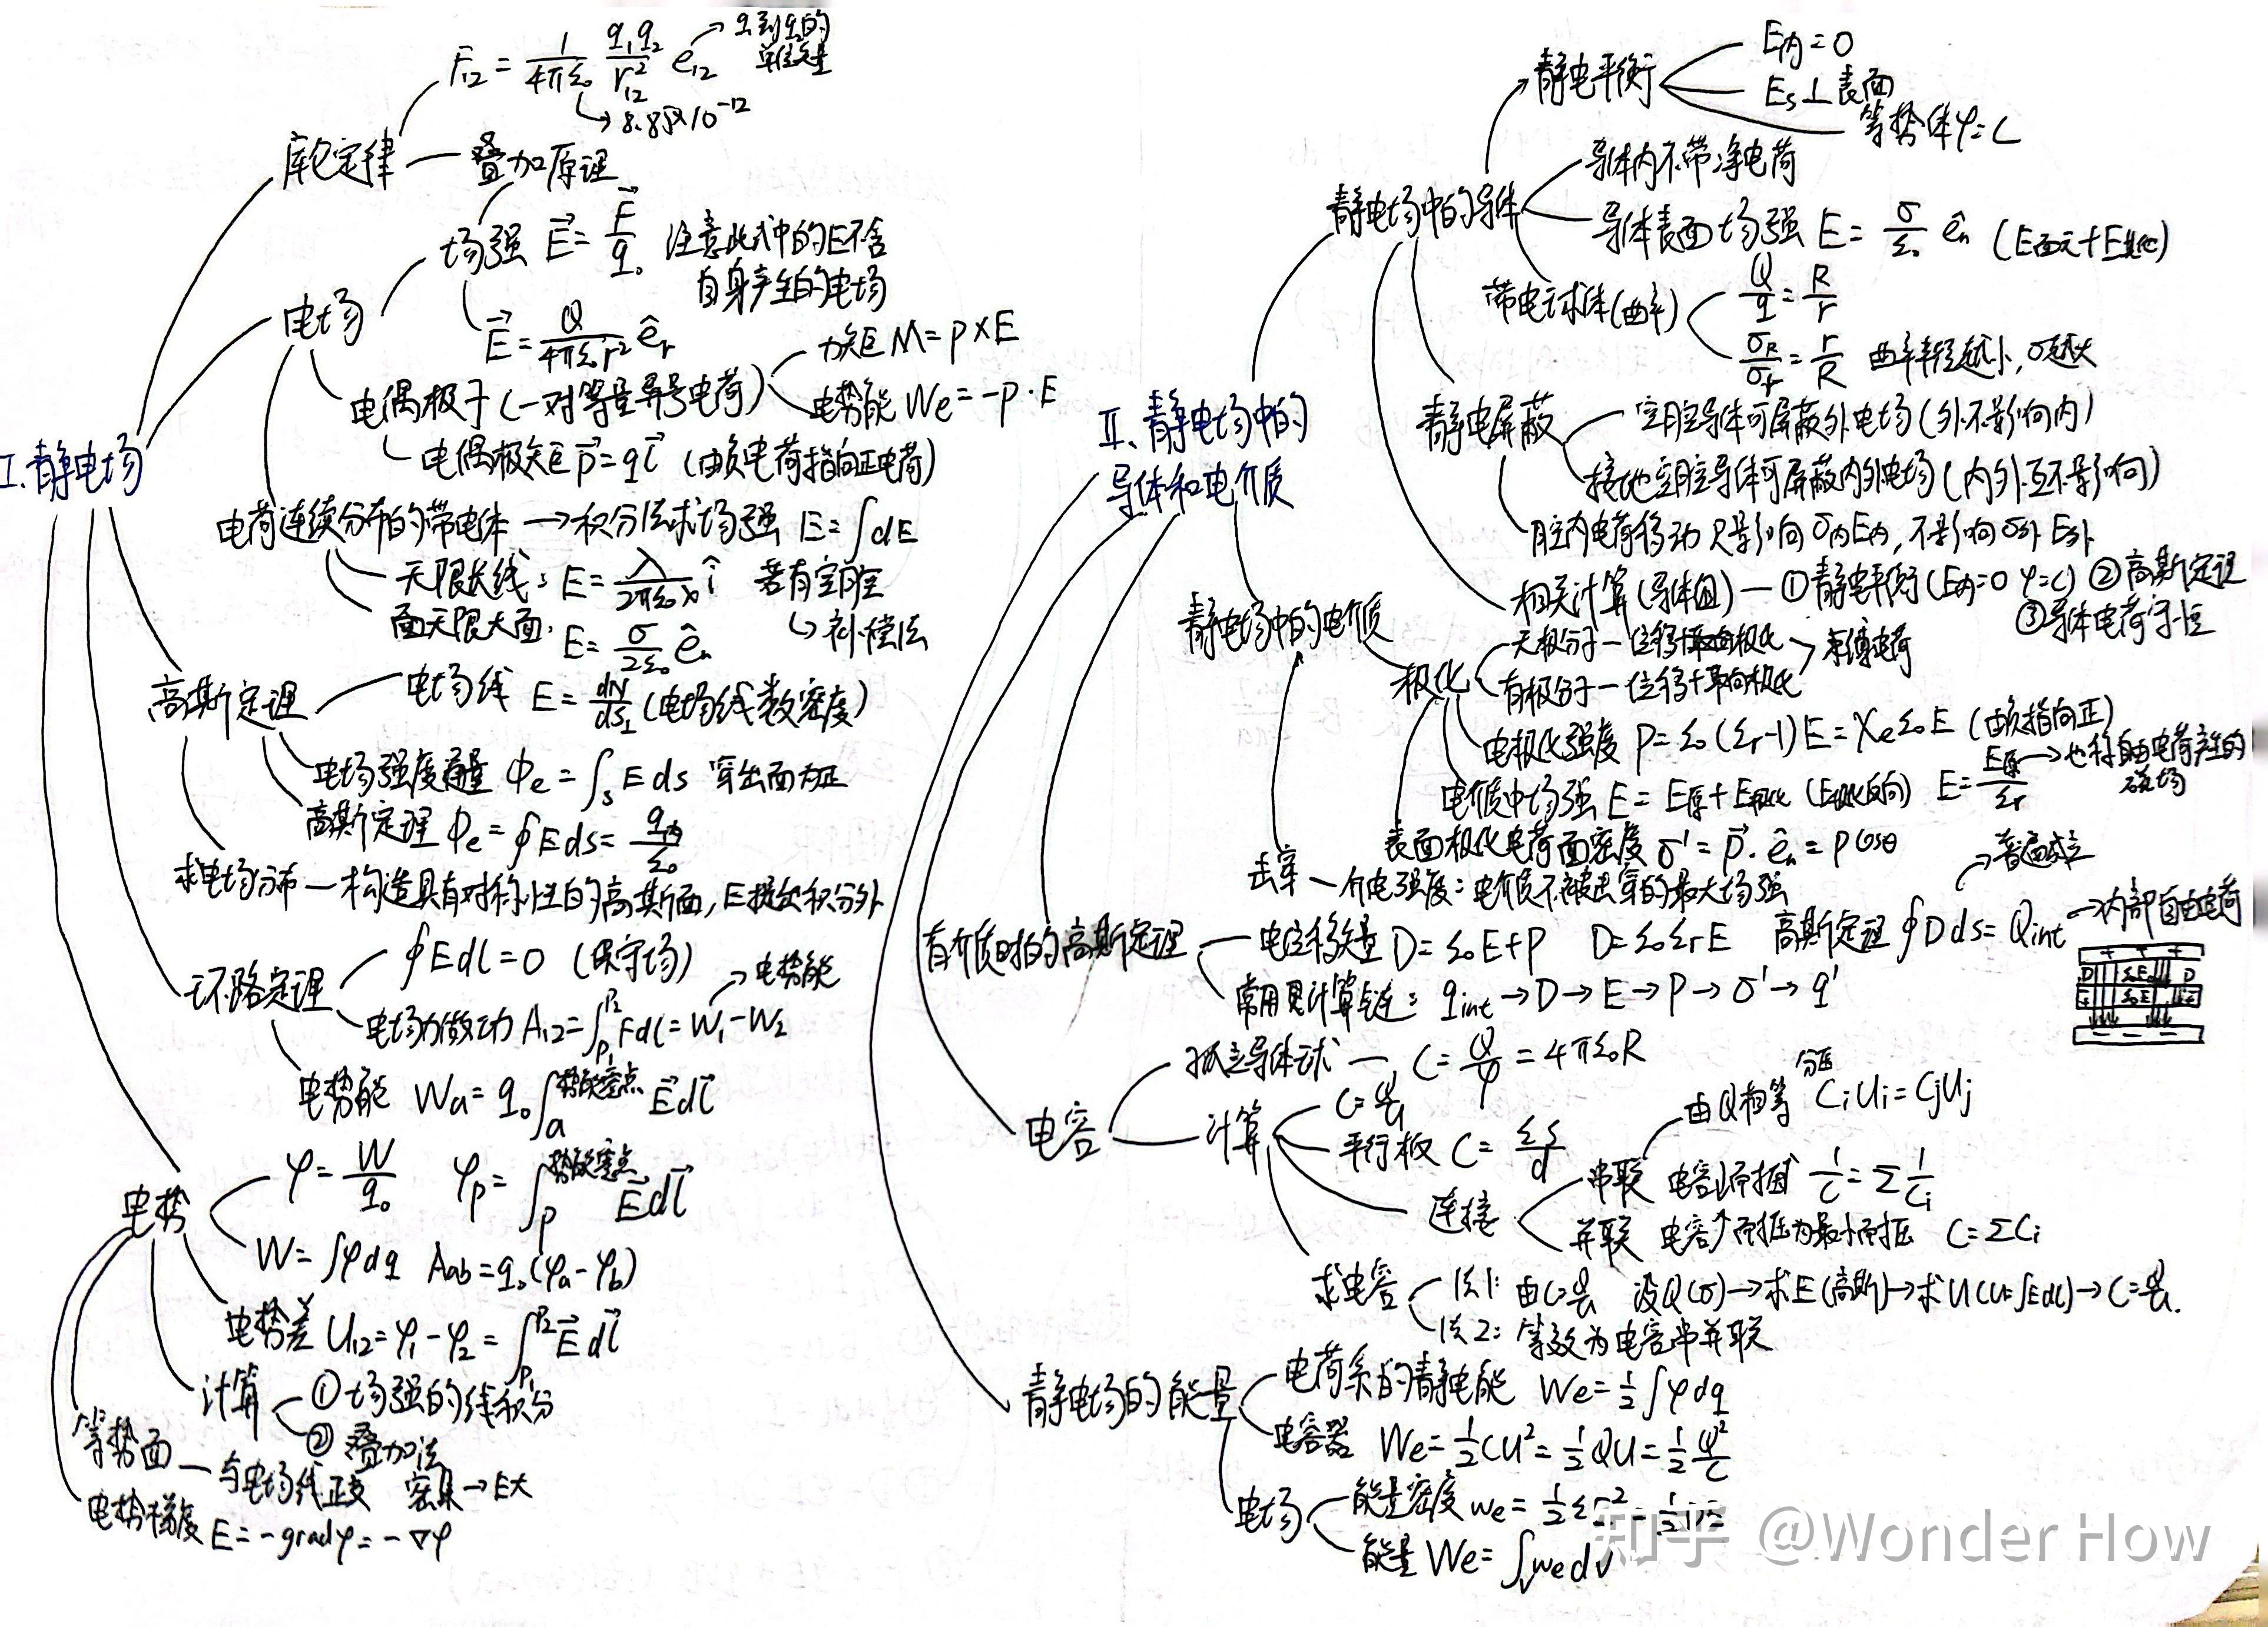 I.静电场
库仑定律
F₁₂ = 1/(4πε₀) q₁q₂/r₁₂² e₁₂ → q₁到q₂的单位矢量
→ 8.85×10⁻¹²
叠加原理
电场
场强 E⃗ = F⃗/q₀ 注意此式中的E不含
自身产生的电场
E⃗ = Q/(4πε₀r²) ê_r
电偶极子(一对等量异号电荷)
力矩 M = p×E
电势能 We = -p·E
电偶极矩 p⃗ = ql⃗ (由负电荷指向正电荷)
电荷连续分布的带电体 → 积分法求场强 E = ∫dE
无限长线: E = λ/(2πε₀x) î 若有空腔
面无限大面: E = σ/(2ε₀) ê_n ↳ 补偿法
高斯定理
电场线 E = dN/dS⊥ (电场线数密度)
电场强度通量 Φe = ∫_s E ds 穿出面为正
高斯定理 Φe = ∮E ds = q内/ε₀
求电场分布 — 构造具有对称性的高斯面, E提出积分外
环路定理
∮E dl = 0 (保守场)
电场力做功 A₁₂ = ∫_{P₁}^{P₂} F dl = W₁ - W₂ → 电势能
电势能 Wa = q₀ ∫_a^{势能零点} E⃗ dl⃗
电势
φ = W/q₀ φ_p = ∫_p^{势能零点} E⃗ dl⃗
W = ∫φdq Aab = q₀(φa - φb)
电势差 U₁₂ = φ₁ - φ₂ = ∫_{P₁}^{P₂} E⃗ dl⃗
计算
① 场强的线积分
② 叠加法
等势面 — 与电场线正交 密集 → E大
电势梯度 E = -gradφ = -∇φ
II.静电场中的
导体和电介质
静电场中的导体
静电平衡
E内 = 0
Es⊥表面
等势体 φ = C
导体内不带净电荷
导体表面场强 E = σ/ε₀ ê_n (E面元 + E其他)
带电球体(曲率)
Q/q = R/r
σ_R/σ_r = r/R 曲率半径越小, σ越大
静电屏蔽
空腔导体可屏蔽外电场(外不影响内)
接地空腔导体可屏蔽内外电场(内外互不影响)
腔内电荷移动 只影响σ内E内, 不影响σ外E外
相关计算(导体组) — ① 静电平衡(E内=0 φ=C) ② 高斯定理
③ 导体电荷守恒
静电场中的电介质
极化
无极分子 — 位移极化 → 束缚电荷
有极分子 — 位移+取向极化
电极化强度 P = ε₀(εr-1)E = χeε₀E (由负指向正)
电介质中场强 E = E原 + E极化 (E极化反向) E = E原/εr → 也称自由电荷产生的
磁场
表面极化电荷面密度 σ' = P⃗·ê_n = Pcosθ
击穿 — 介电强度: 电介质不被击穿的最大场强
有介质时的高斯定理
电位移矢量 D = ε₀E+P D = ε₀εrE 高斯定理 ∮D ds = Qint → 内部自由电荷
→ 普遍成立
常用计算链: qint → D → E → P → σ' → q'
电容
孤立导体球 — C = Q/φ = 4πε₀R
计算
C = Q/U
平行板 C = εS/d
连接
串联 电容↓耐压↑ 1/C = Σ1/Ci
由Q相等 CiUi = CjUj
分压
并联 电容↑耐压为最小耐压 C = ΣCi
求电容
法1: 由C=Q/U 设Q(σ) → 求E(高斯) → 求U(U=∫Edl) → C=Q/U.
法2: 等效为电容串并联
静电场的能量
电荷系的静电能 We = ½∫φdq
电容器 We = ½CU² = ½QU = ½Q²/C
电场
能量密度 we = ½εE² = ½DE
能量 We = ∫_v we dv
知乎 @Wonder How